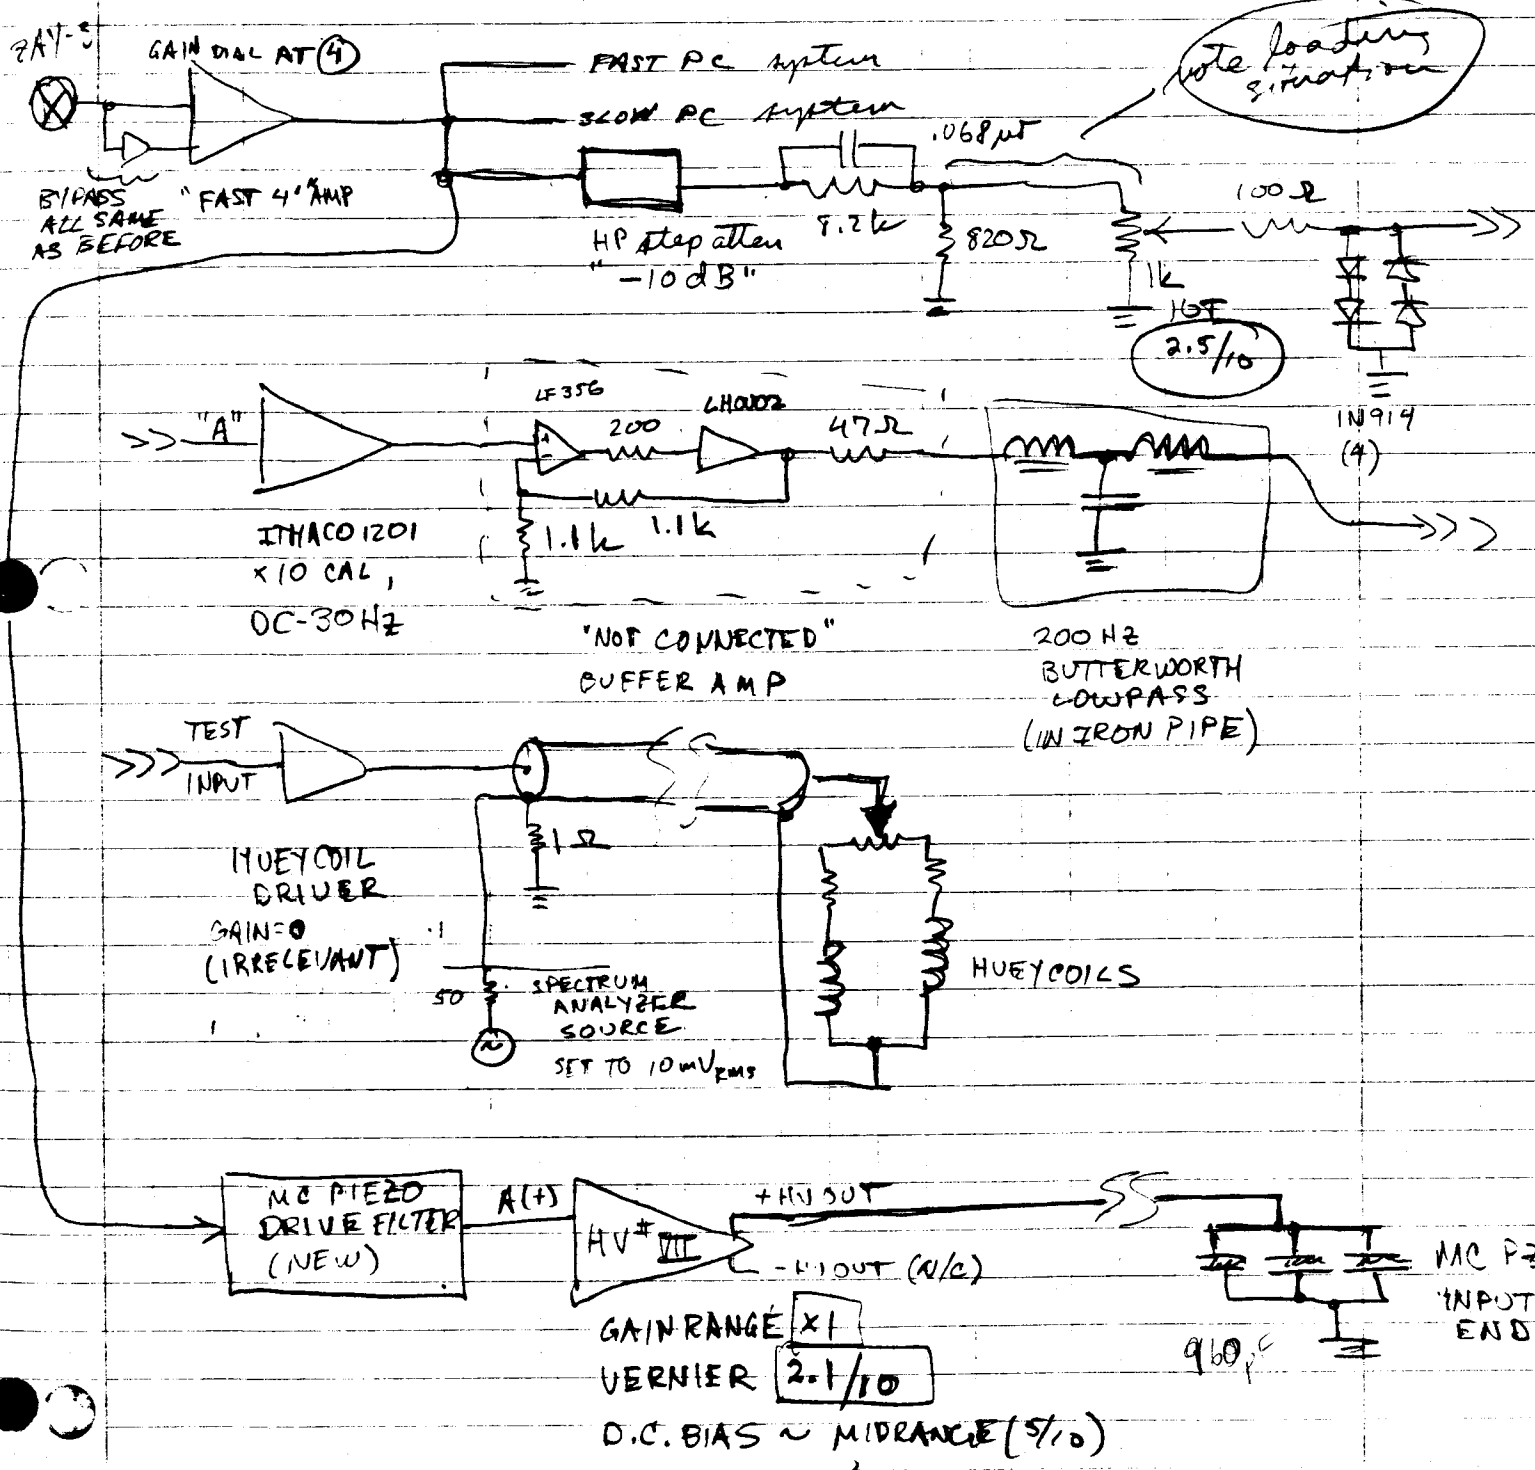 GAIN DIAL AT 4
FAST PC system
note loading
situation
SLOW PC system
.068μf
BYPASS
ALL SAME
AS BEFORE
"FAST 4" AMP
HP step atten
"-10dB"
8.2k
820Ω
1k
10T
2.5/10
100Ω
1N914
(4)
"A"
LF356
200
LH0002
47Ω
1.1k
1.1k
ITHACO 1201
×10 CAL,
DC-30HZ
"NOT CONNECTED"
BUFFER AMP
200 HZ
BUTTERWORTH
LOWPASS
(IN IRON PIPE)
TEST
INPUT
1Ω
HUEYCOIL
DRIVER
GAIN=0
(IRRELEVANT)
50
SPECTRUM
ANALYZER
SOURCE
SET TO 10mVRMS
HUEYCOILS
MC PIEZO
DRIVE FILTER
(NEW)
A(+)
HV# VII
+HV OUT
-HV OUT (N/C)
MC PZ
INPUT
END
GAIN RANGE ×1
VERNIER 2.1/10
D.C. BIAS ~ MIDRANGE (5/10)